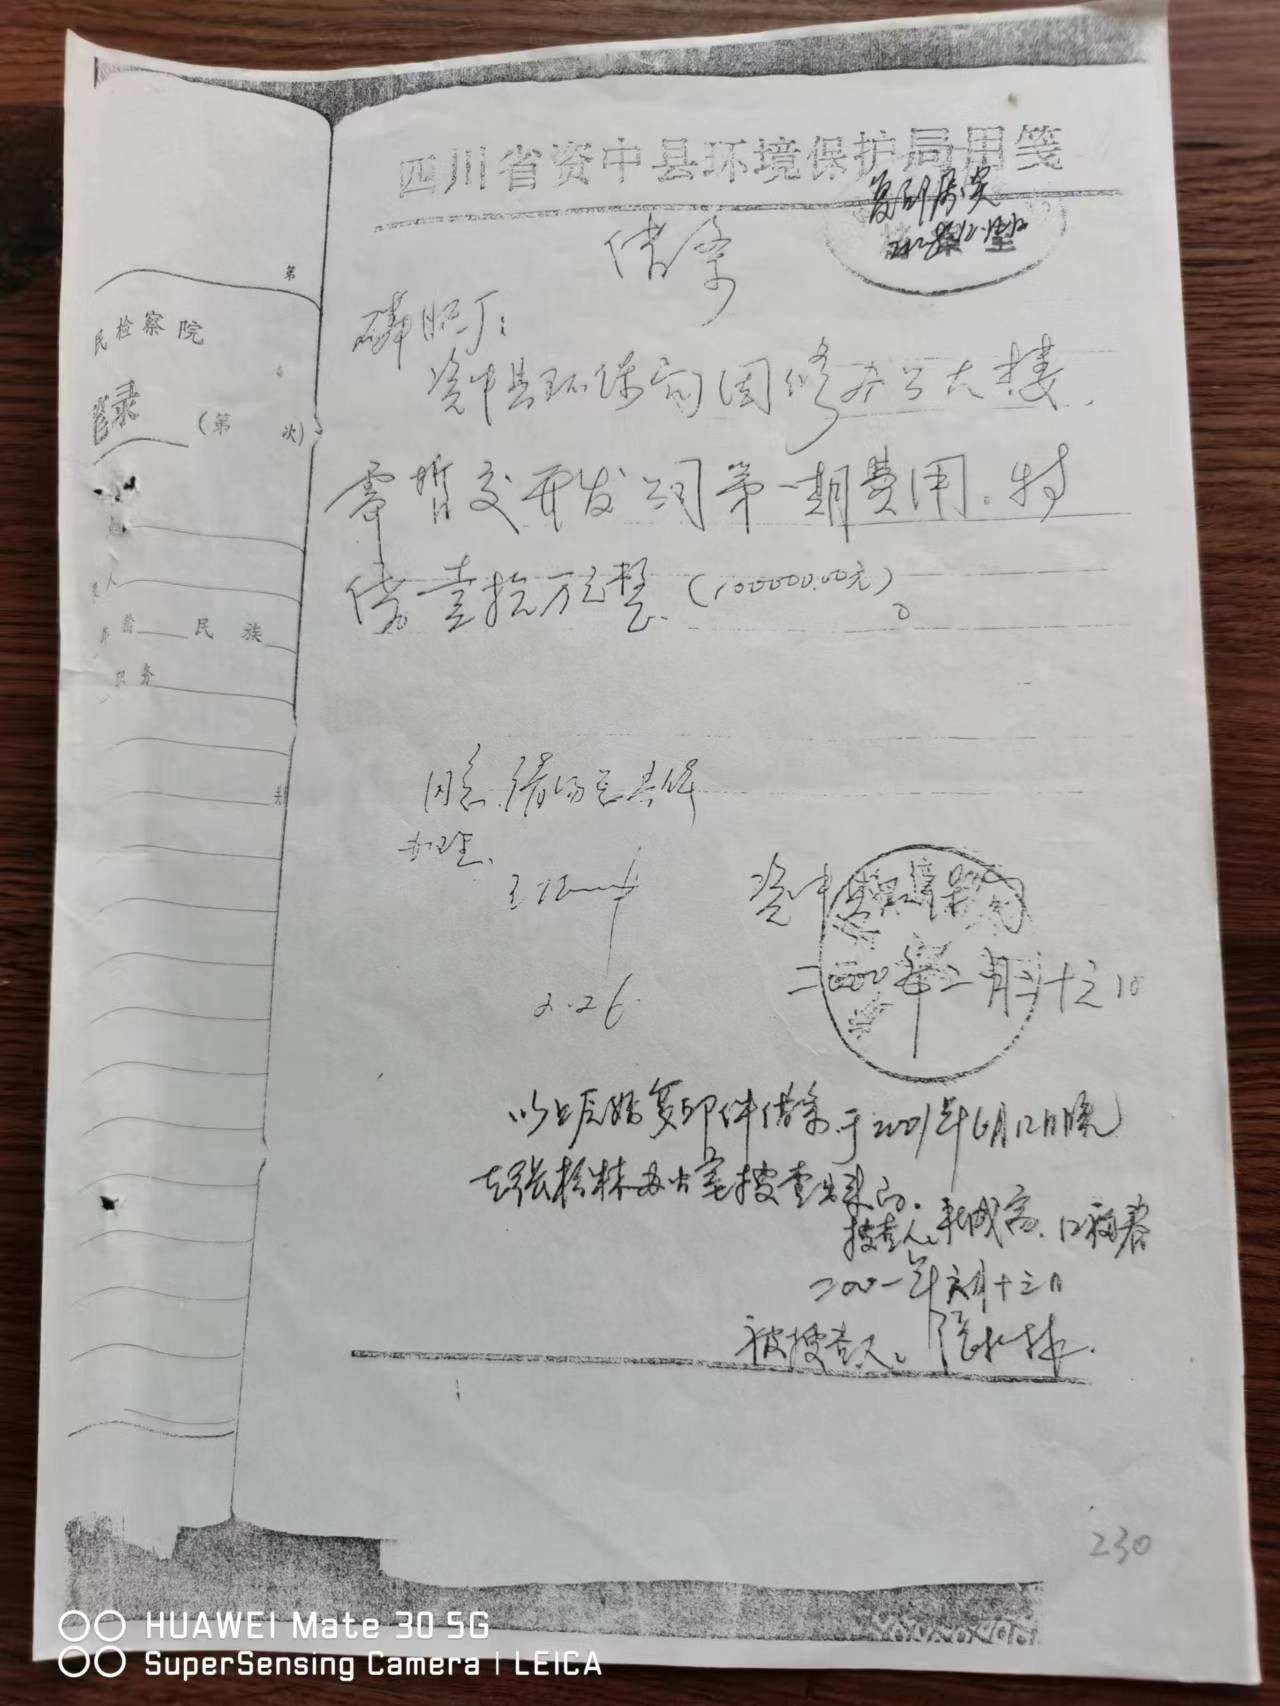 四川省资中县环境保护局用笺
复印属实
借条
磷肥厂：
资中县环保局因修办公大楼，
需暂交开发公司第一期费用。特
借壹拾万元整（100000.00元）。
同意，请汤
办理。
2.26.
资中县环境保护局
二000年二月二十三日
以上原始复印件借条于2001年6月12日晚
在张松林办公室搜查出来的。
搜查人：
二00一年六月十三日
被搜查人：张松林.
第
民检察院
笔录
（第 次）
人
年龄 民族
职务
230
HUAWEI Mate 30 5G
SuperSensing Camera | LEICA